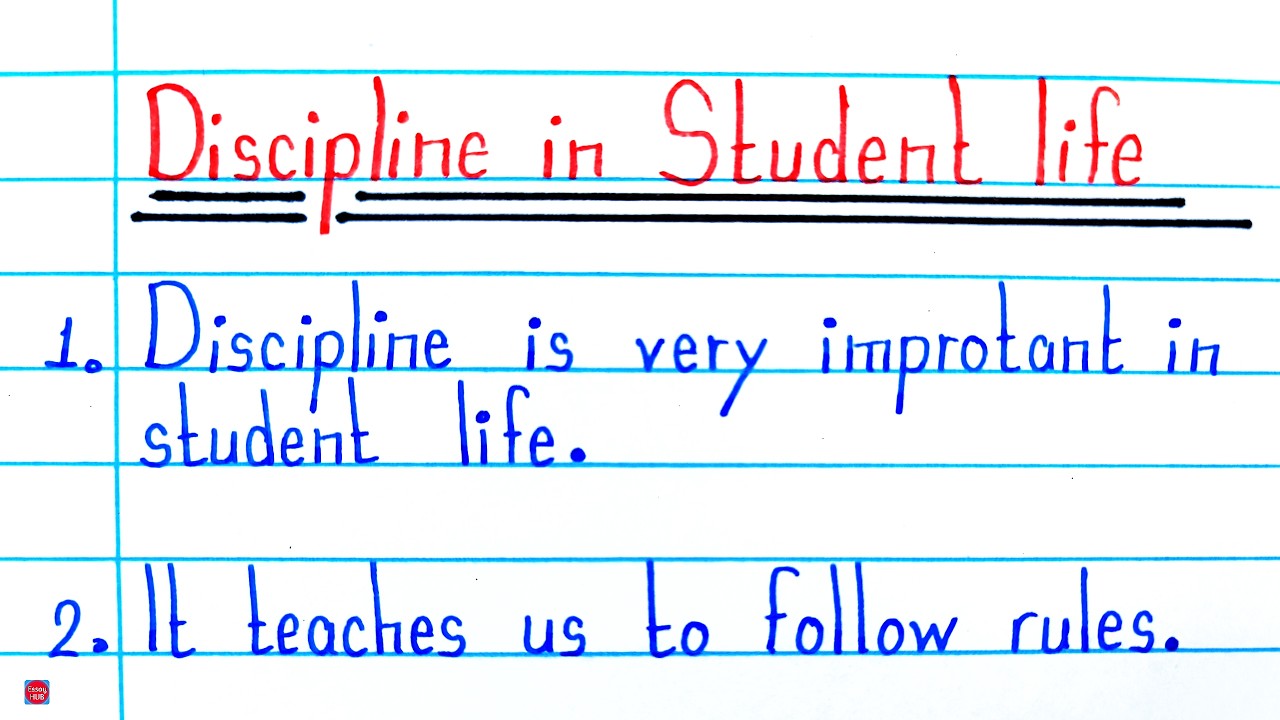 Discipline in Student life
1. Discipline is very improtant in
student life.
2. It teaches us to follow rules.
Essay
HUB